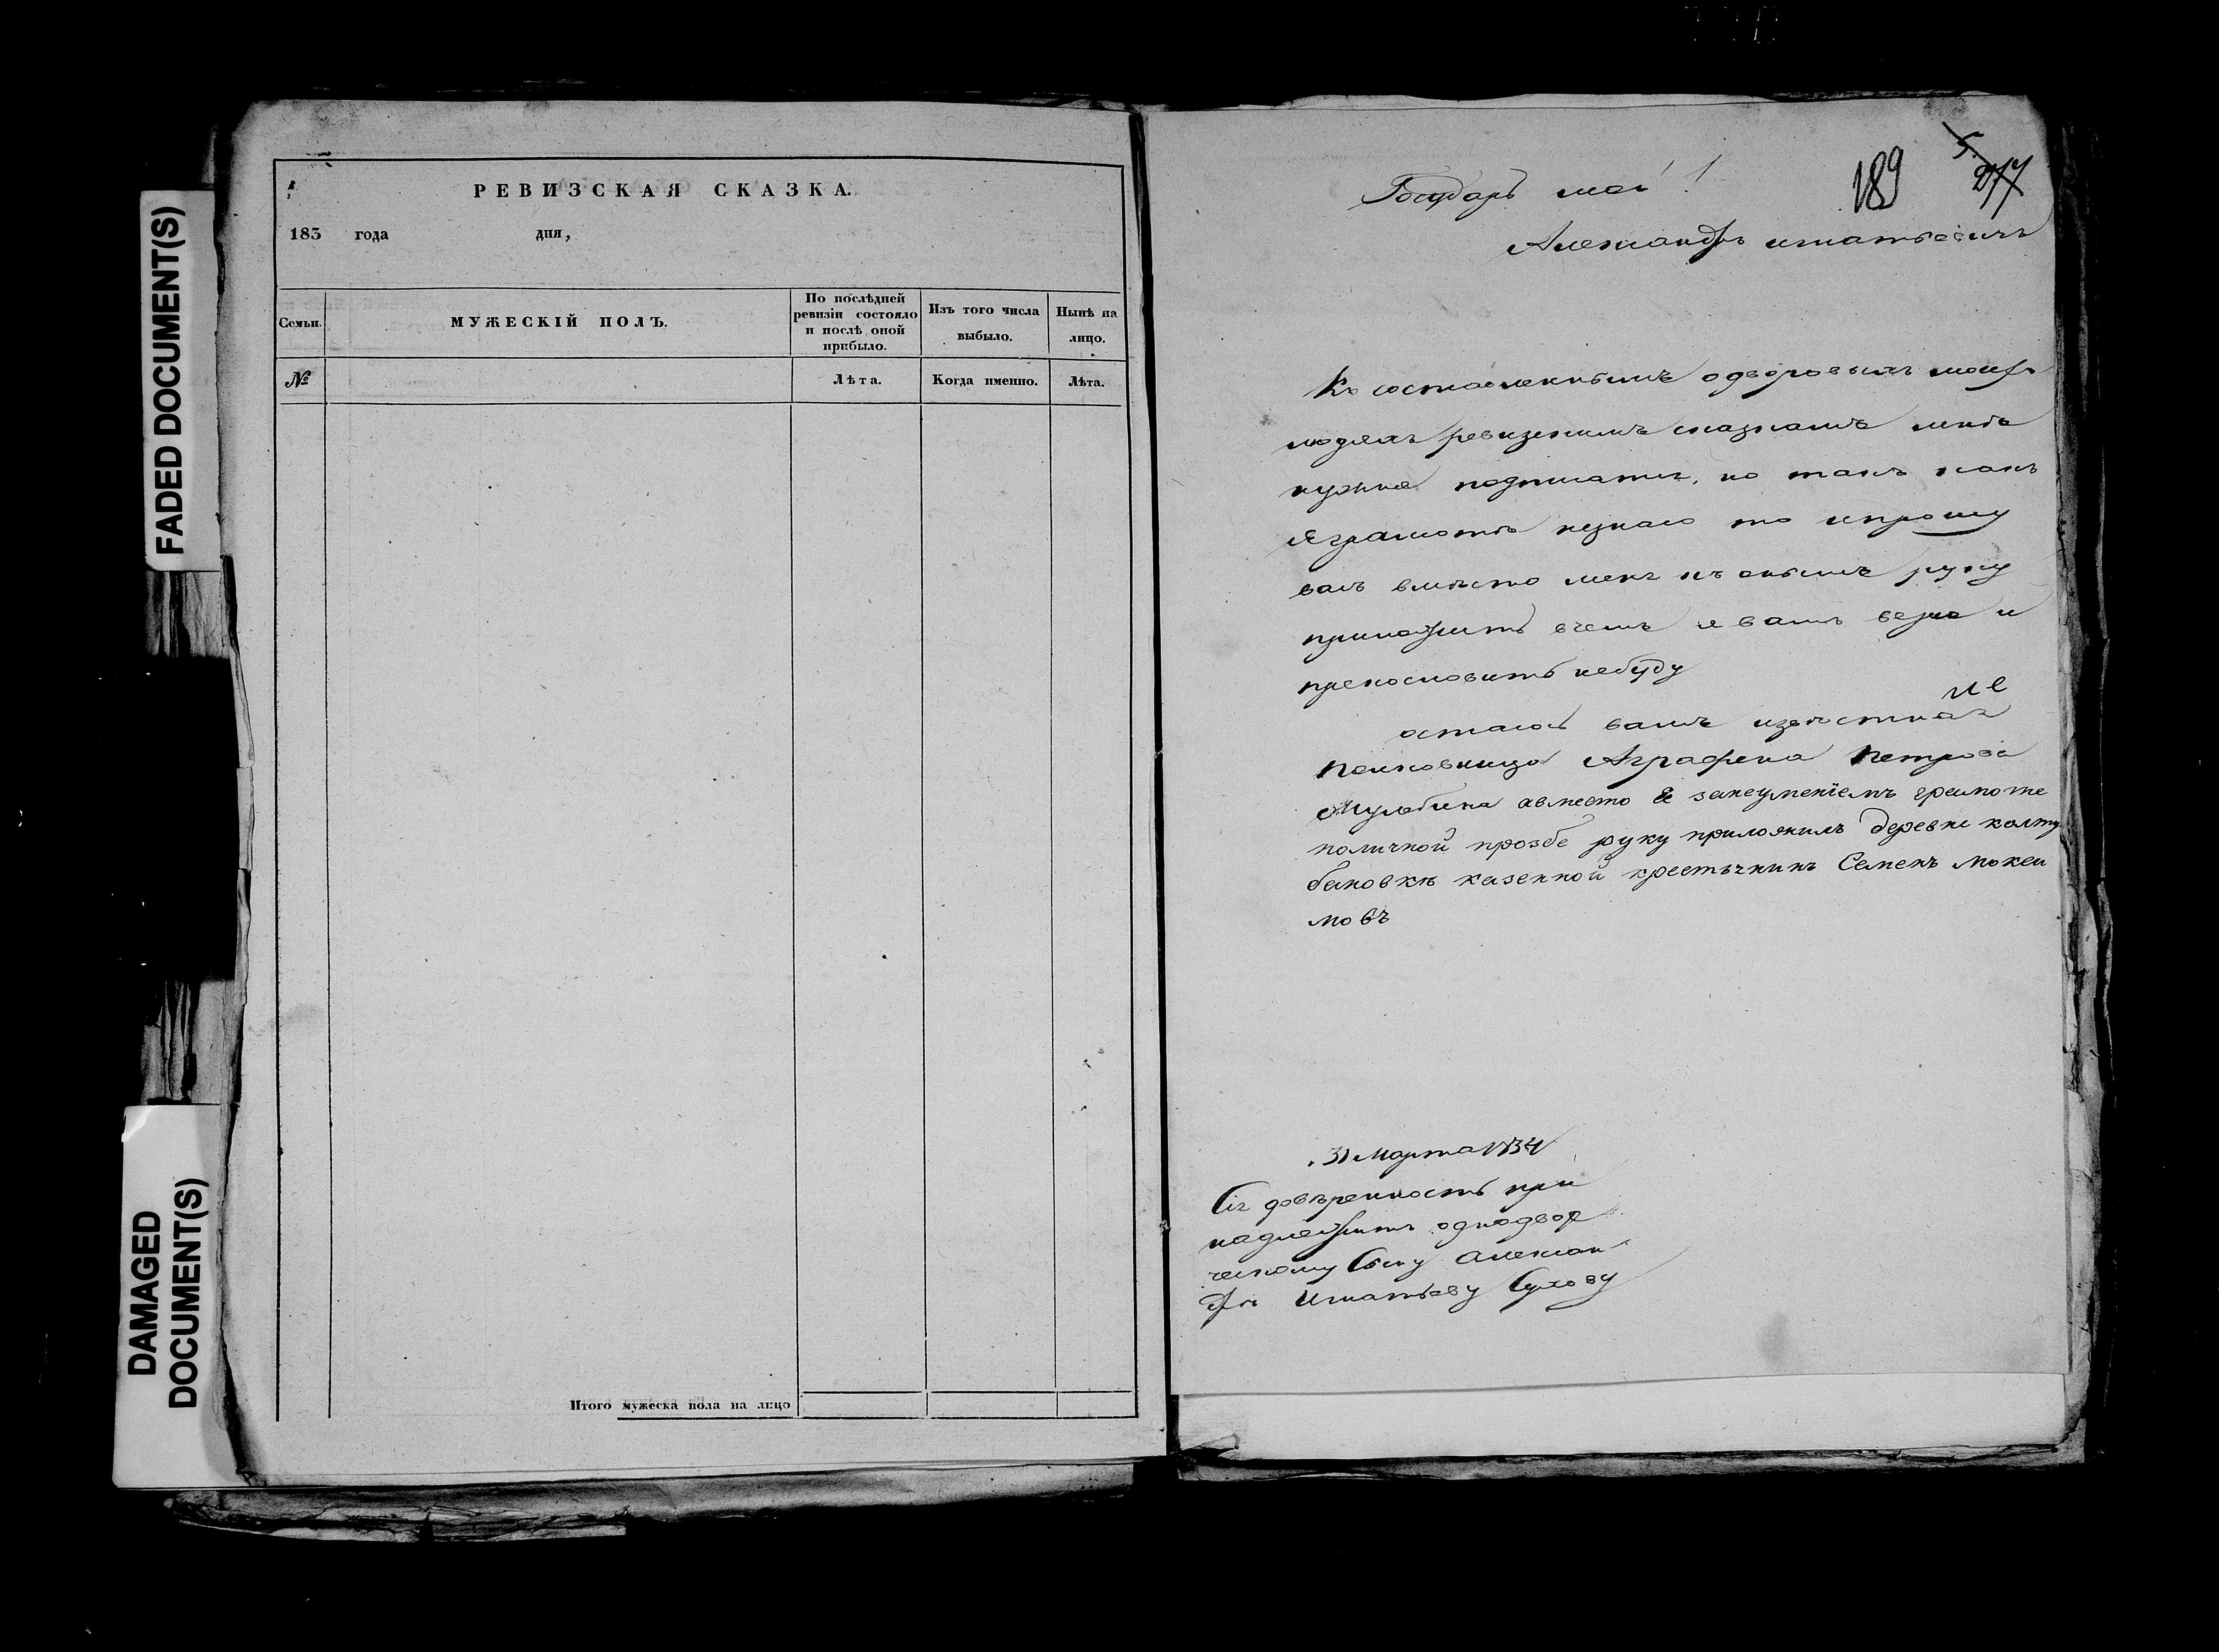 FADED DOCUMENT(S)
DAMAGED
DOCUMENT(S)
РЕВИЗСКАЯ СКАЗКА.
183 года дня,
Семьи.
МУЖЕСКІЙ ПОЛЪ.
По послѣдней
ревизіи состояло
и послѣ оной
прибыло.
Изъ того числа
выбыло.
Нынѣ на
лицо.
№
Лѣта.
Когда именно.
Лѣта.
Итого мужеска пола на лицо
189
5.
Государь мой!
Александръ игнатьевичъ
Къ составленнымъ одворовыхъ моихъ
людяхъ ревизскимъ сказкамъ мнѣ
нужно подписатца, но такъ какъ
я грамотѣ незнаю то ипрошу
васъ вмѣсто меня къ онымъ руку
приложить вчемъ я вамъ верю и
прекословить небуду
остаюсь вамъ извѣстная
Полковница Аграфена Петрова
авместо Ее занеуменіемъ грамоте
поличной прозбе руку приложилъ деревне колту
бановкѣ казенной крестьянинъ Семенъ Мокеи
мовъ
31 Марта 1834
Сія довѣренность при
надлежитъ однодвор
ческому Сыну Алексан
дръ Игнатьеву Сухову